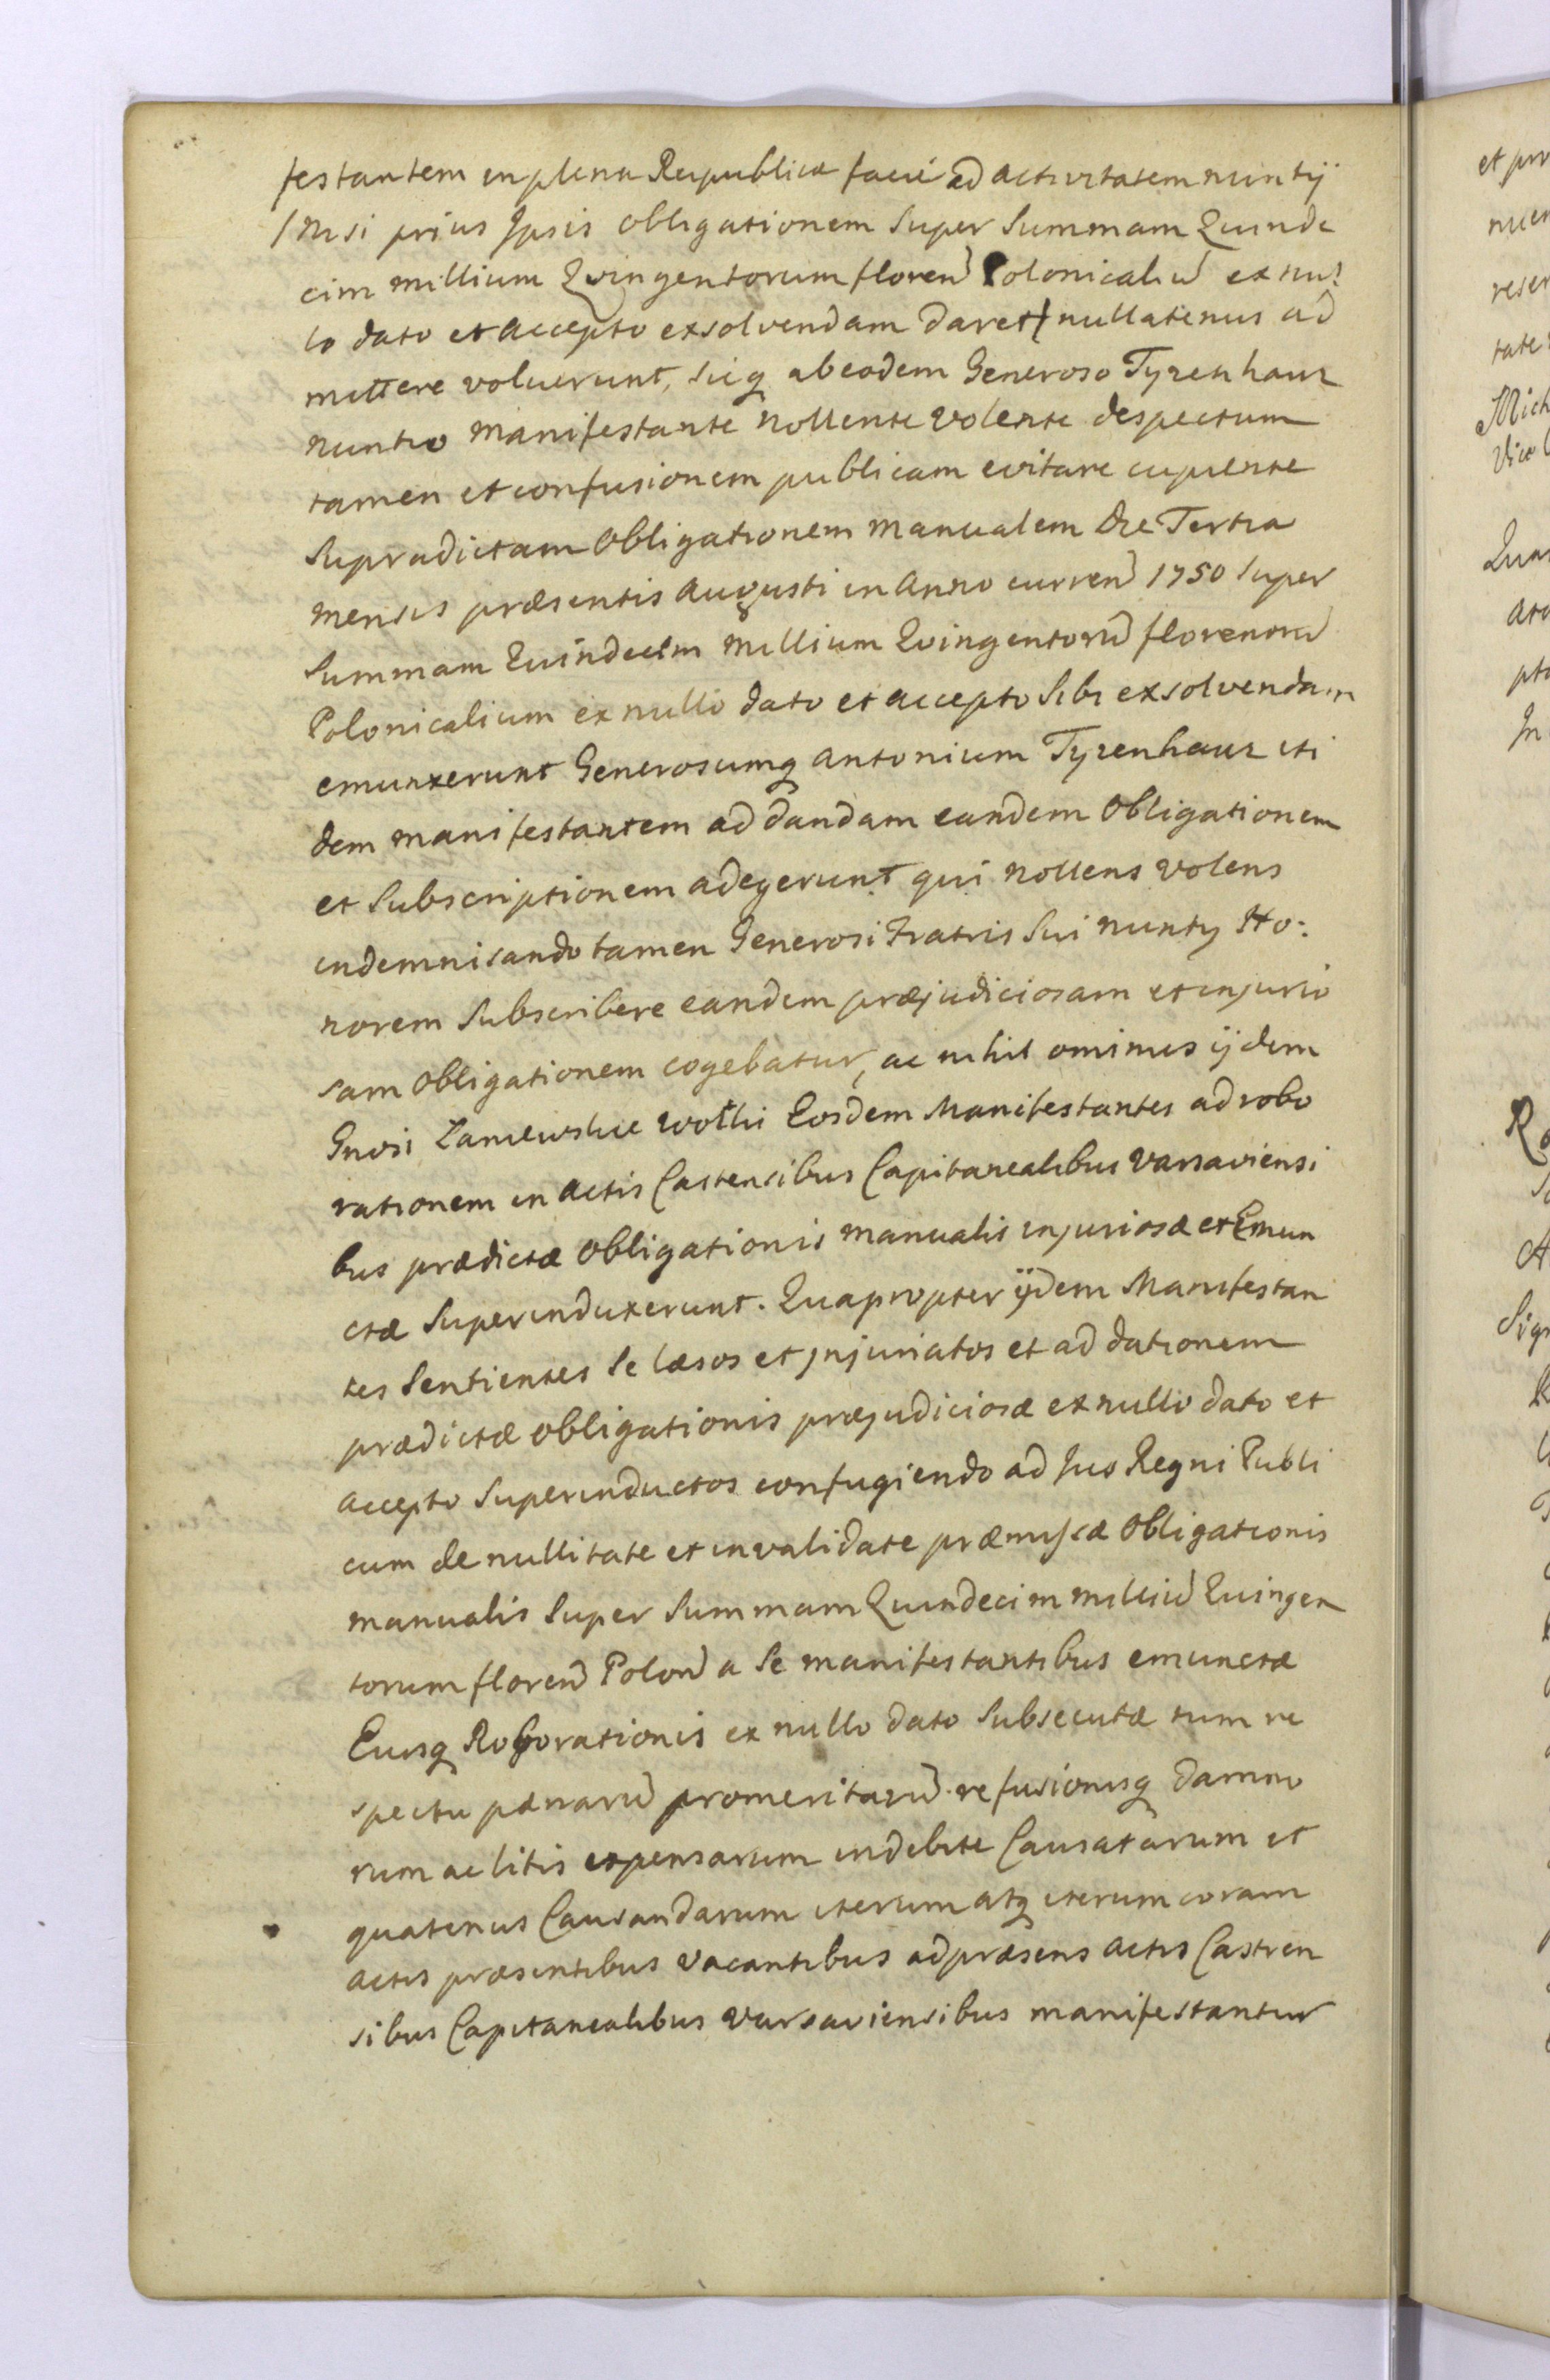 festantem in plena Reipublicæ facie ad activitatem nuntij
/nisi prius Ipsis obligationem super summam Quinde
cim millium Quingentorum floren Polonicaliu ex nul
lo dato et accepto exsolvendam daret/ nullatenus ad
mittere voluerunt, sicq ab eodem Generoso Tyzenhauz
nuntio manifestante nollente volente despectum
tamen et confusionem publicam evitare cupiente
supradictam obligationem manualem die Tertia
mensis præsentis Augusti in Anno curren 1750 super
summam Quindecim millium Quingentoru florenoru
Polonicalium ex nullo dato et accepto sibi exsolvendam
emunxerunt Generosumq Antonium Tyzenhauz iti
dem manifestantem ad dandam eandem obligationem
et subscriptionem adegerunt qui nollens volens
indemnisando tamen Generosi Fratris sui nuntij Ho:
norem subscribere eandem præjudiciosam et injurio
sam obligationem cogebatur, ac nihil ominus ijdem
Gnosi Zaniewskie Wolki Eosdem Manifestantes ad robo
rationem in actis Castensibus Capitanealibus Varsaviensi
bus prædictæ obligationis manualis injuriosæ et Emun
ctæ superinduxerunt. Quapropter ijdem Manifestan
tes sentientes se læsos et injuriatos et ad dationem
prædictæ obligationis præjudiciosæ ex nullo dato et
accepto superinductos confugiendo ad Jus Regni Publi
cum de nullitate et invalidate præmissæ obligationis
manualis super summam Quindecim milliu Quingen
torum floren Polon a se manifestantibus emunctæ
Eiusq Roborationis ex nullo dato subsecutæ tum re
spectu pænaru promeritaru refusionisq damno
rum ac litis expensarum indebite Causatarum et
quatenus Causandarum iterum atq iterum coram
actis præsentibus vacantibus ad præsens actis Castren
sibus Capitanealibus Varsaviensibus manifestantur